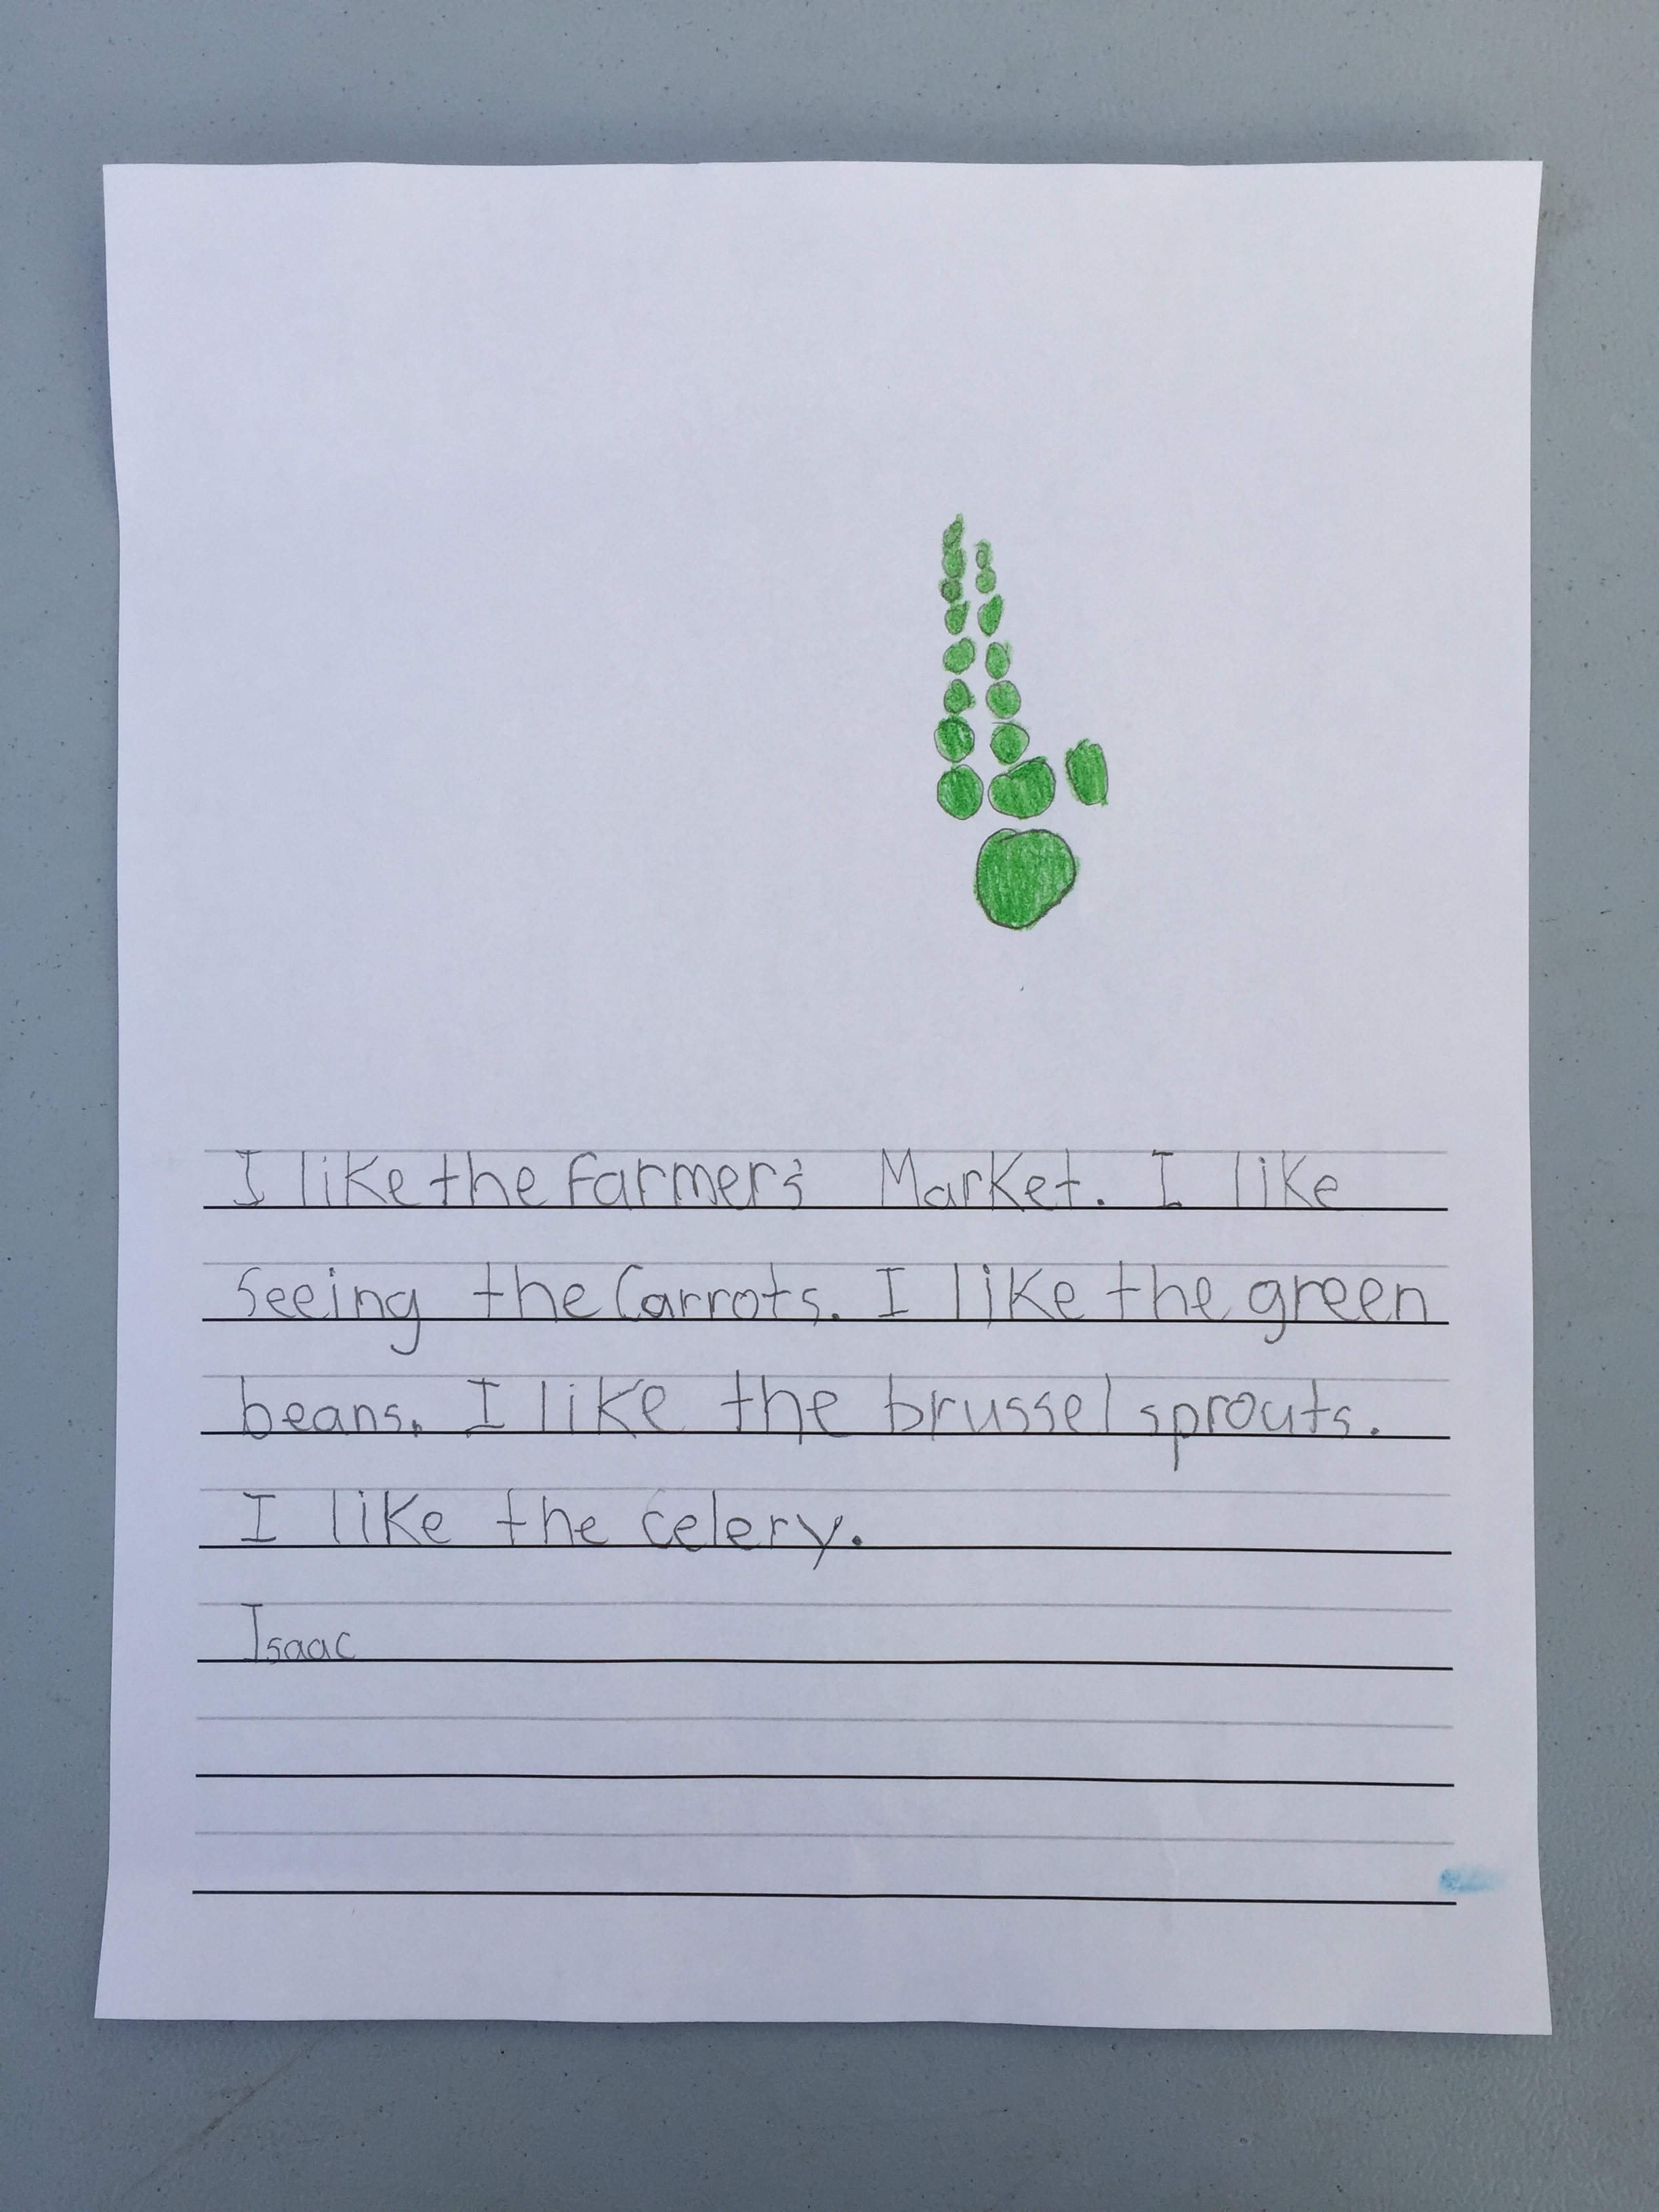 I like the farmer's Market. I like
seeing the Carrots. I like the green
beans. I like the brussel sprouts.
I like the celery.
Isaac